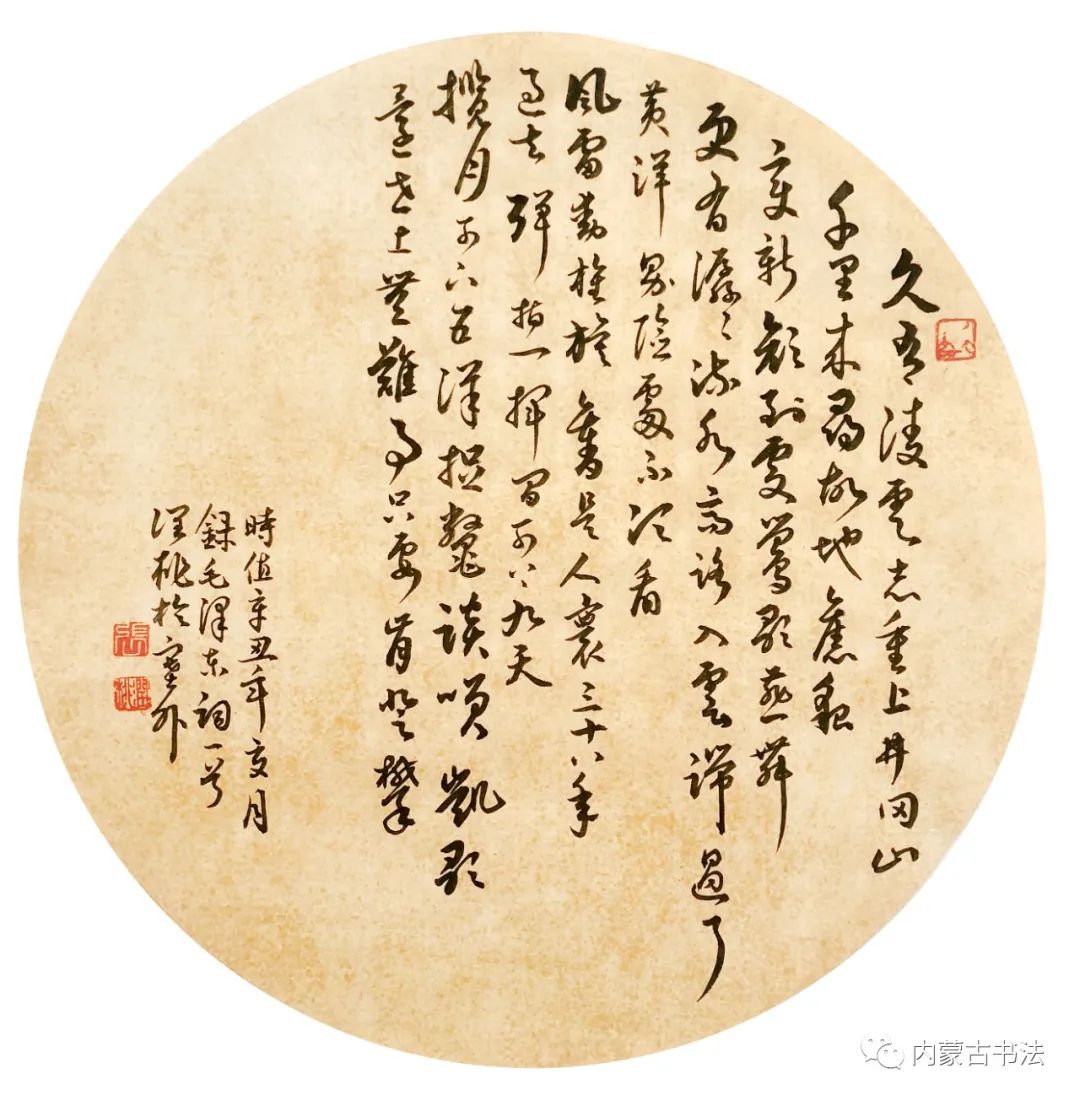 久有凌雲志重上井冈山
千里来尋故地舊貌
變新顔到處鶯歌燕舞
更有潺〻流水高路入雲端過了
黄洋界險處不須看
風雷動旌旗奮是人寰三十八年
過去彈指一揮間可上九天
攬月可下五洋捉鱉談笑凱歌
還世上無難事只要肯登攀
時值辛丑年亥月
錄毛澤东詞一首
澤桃於塞外
張
澤桃
内蒙古书法